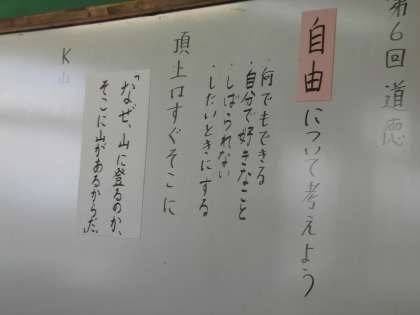 第6回 道徳
自由について考えよう
・何でもできる
・自分で好きなこと
・しばられない
・したいときにする
頂上はすぐそこに
「なぜ、山に登るのか、
そこに山があるからだ」
K山